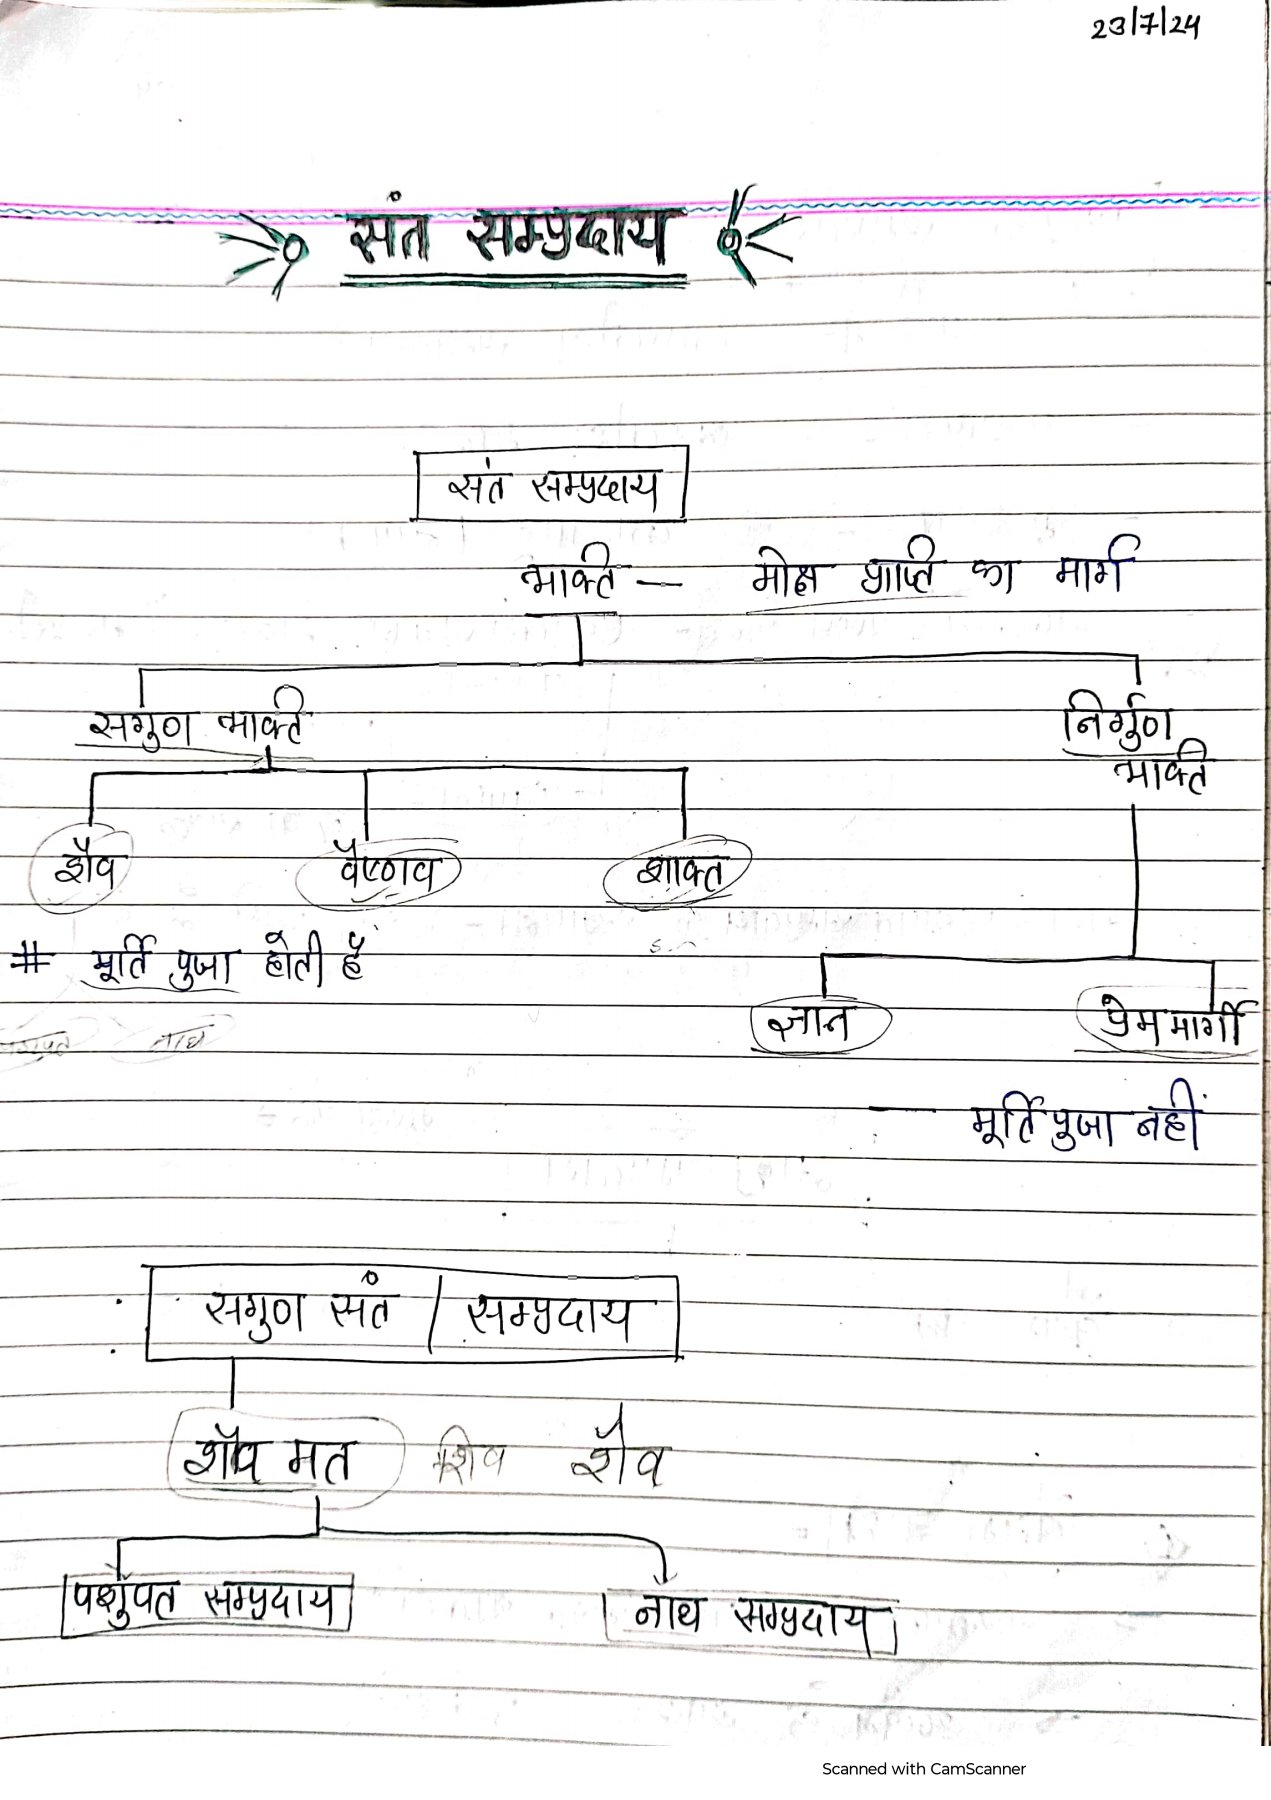 23/7/24
संत सम्प्रदाय
संत सम्प्रदाय
भक्ति — मोक्ष प्राप्ति का मार्ग
सगुण भक्ति
निर्गुण
भक्ति
शैव वैष्णव शाक्त
# मूर्ति पुजा होती है
ज्ञान प्रेम मार्गी
नाथ
— मूर्ति पुजा नहीं
सगुण संत / सम्प्रदाय
शैव मत शिव शैव
पशुपत सम्प्रदाय नाथ सम्प्रदाय
Scanned with CamScanner